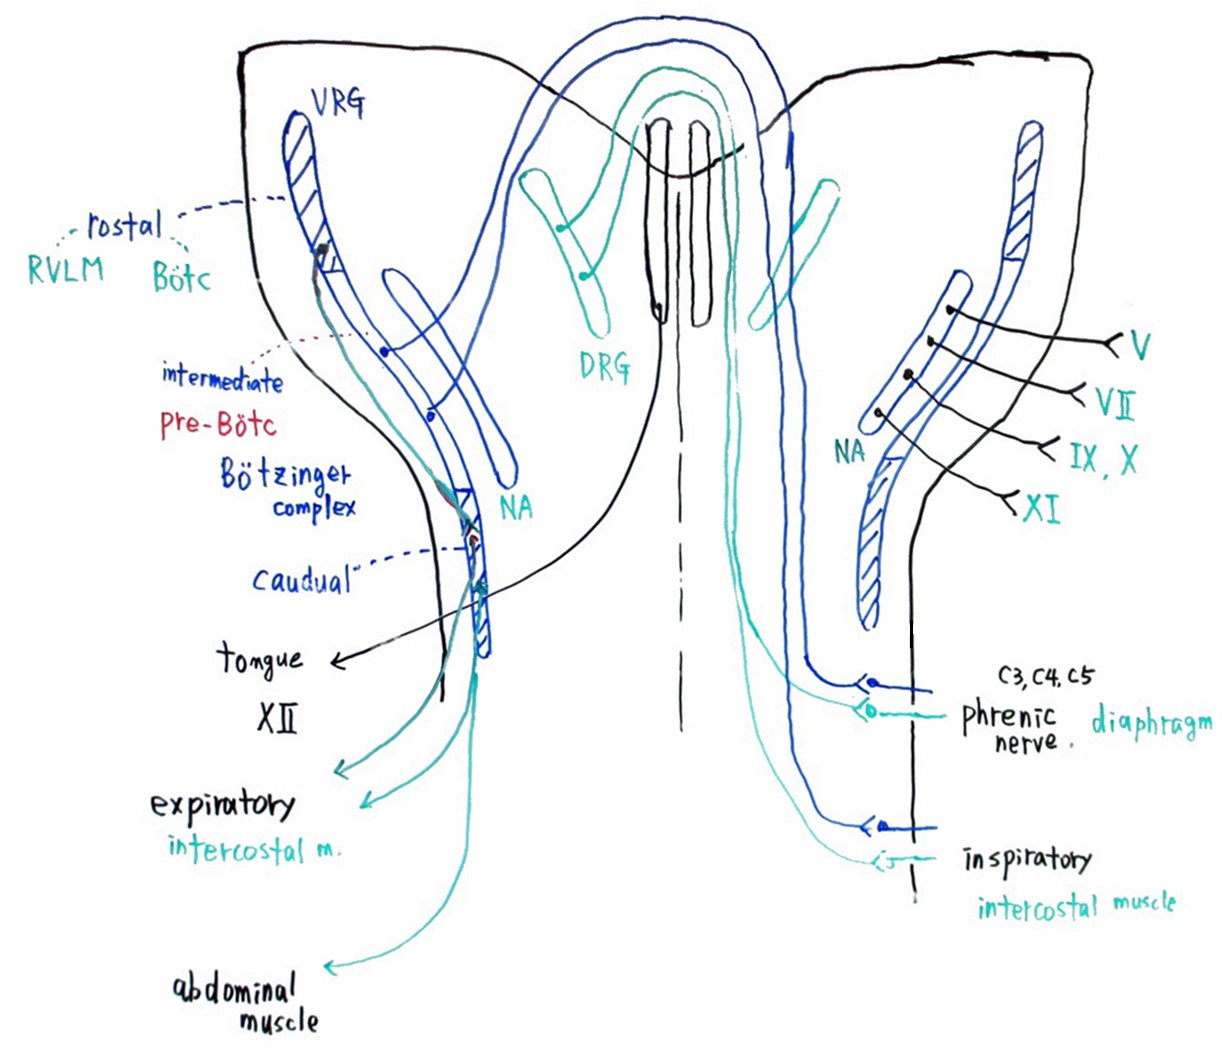 VRG
rostal
RVLM
Bötc
intermediate
pre-Bötc
Bötzinger
complex
NA
DRG
caudual
tongue
XII
expiratory
intercostal m.
abdominal
muscle
V
VII
NA
IX, X
XI
C3, C4, C5
phrenic
nerve.
diaphragm
inspiratory
intercostal muscle